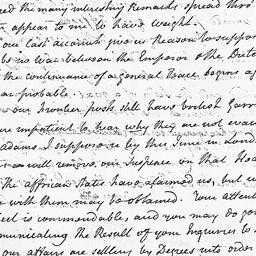 the many interesting Remarks spread thro
appear to me to have weight.
our last accounts give us Reason to suppos
be no War between the Emperor & the Dutch
the continuance of a general Peace begins ap
probable.
our frontier posts still have british Garr
are impatient to hear why they are not evac
Adams I suppose is by this Time in Lond
will remove our Suspence on that Head
The affrican States have alarmed us, but
with them may be obtained. Your attent
is commendable, and you may do go
municating the Result of your Enquiries to
our affairs are settling by Degrees into order